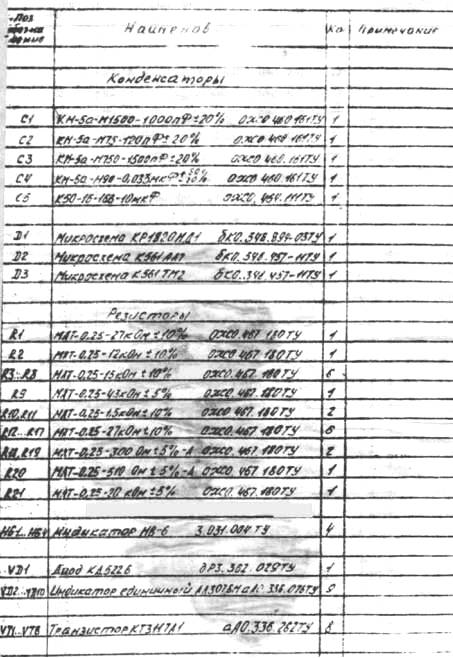 Поз. обозначение Наименов Ко Примечание
Конденсаторы
C1 КМ-5а-М1500-1000пФ±20% ОЖО.460.161ТУ 1
C2 КМ-5а-М75-120пФ±20% ОЖО.460.161ТУ 1
C3 КМ-5а-М750-1500пФ±20% ОЖО.460.161ТУ 1
C4 КМ-5а-Н90-0,033мкФ ОЖО.460.161ТУ 1
C5 К50-16-16В-10мкФ ОЖО.464.111ТУ 1
D1 Микросхема КР1820 бКО.348.894-03ТУ 1
D2 Микросхема К561ЛА7 бКО.348.457-11ТУ 1
D3 Микросхема К561ТМ2 бКО.348.457-11ТУ 1
Резисторы
R1 МЛТ-0,25-27кОм±10% ОЖО.467.180ТУ 1
R2 МЛТ-0,25-12кОм±10% ОЖО.467.180ТУ 1
R3..R8 МЛТ-0,25-15кОм±10% ОЖО.467.180ТУ 6
R9 МЛТ-0,25-43кОм±5% ОЖО.467.180ТУ 1
R10,R11 МЛТ-0,25-1,5кОм±10% ОЖО.467.180ТУ 2
R12..R17 МЛТ-0,25-27кОм±10% ОЖО.467.180ТУ 6
R18,R19 МЛТ-0,25-300 Ом±5%-А ОЖО.467.180ТУ 2
R20 МЛТ-0,25-510 Ом±5%-А ОЖО.467.180ТУ 1
R21 МЛТ-0,25-20 кОм±5% ОЖО.467.180ТУ 1
HG1..HG4 Индикатор ИВ-6 3.031.004 ТУ 4
VD1 Диод КД522Б дР3.362.029ТУ 1
VD2..VD10 Индикатор единичный АЛ307БМ аАО.336.076ТУ 9
VT1..VT8 Транзистор аАО.336.262ТУ 8